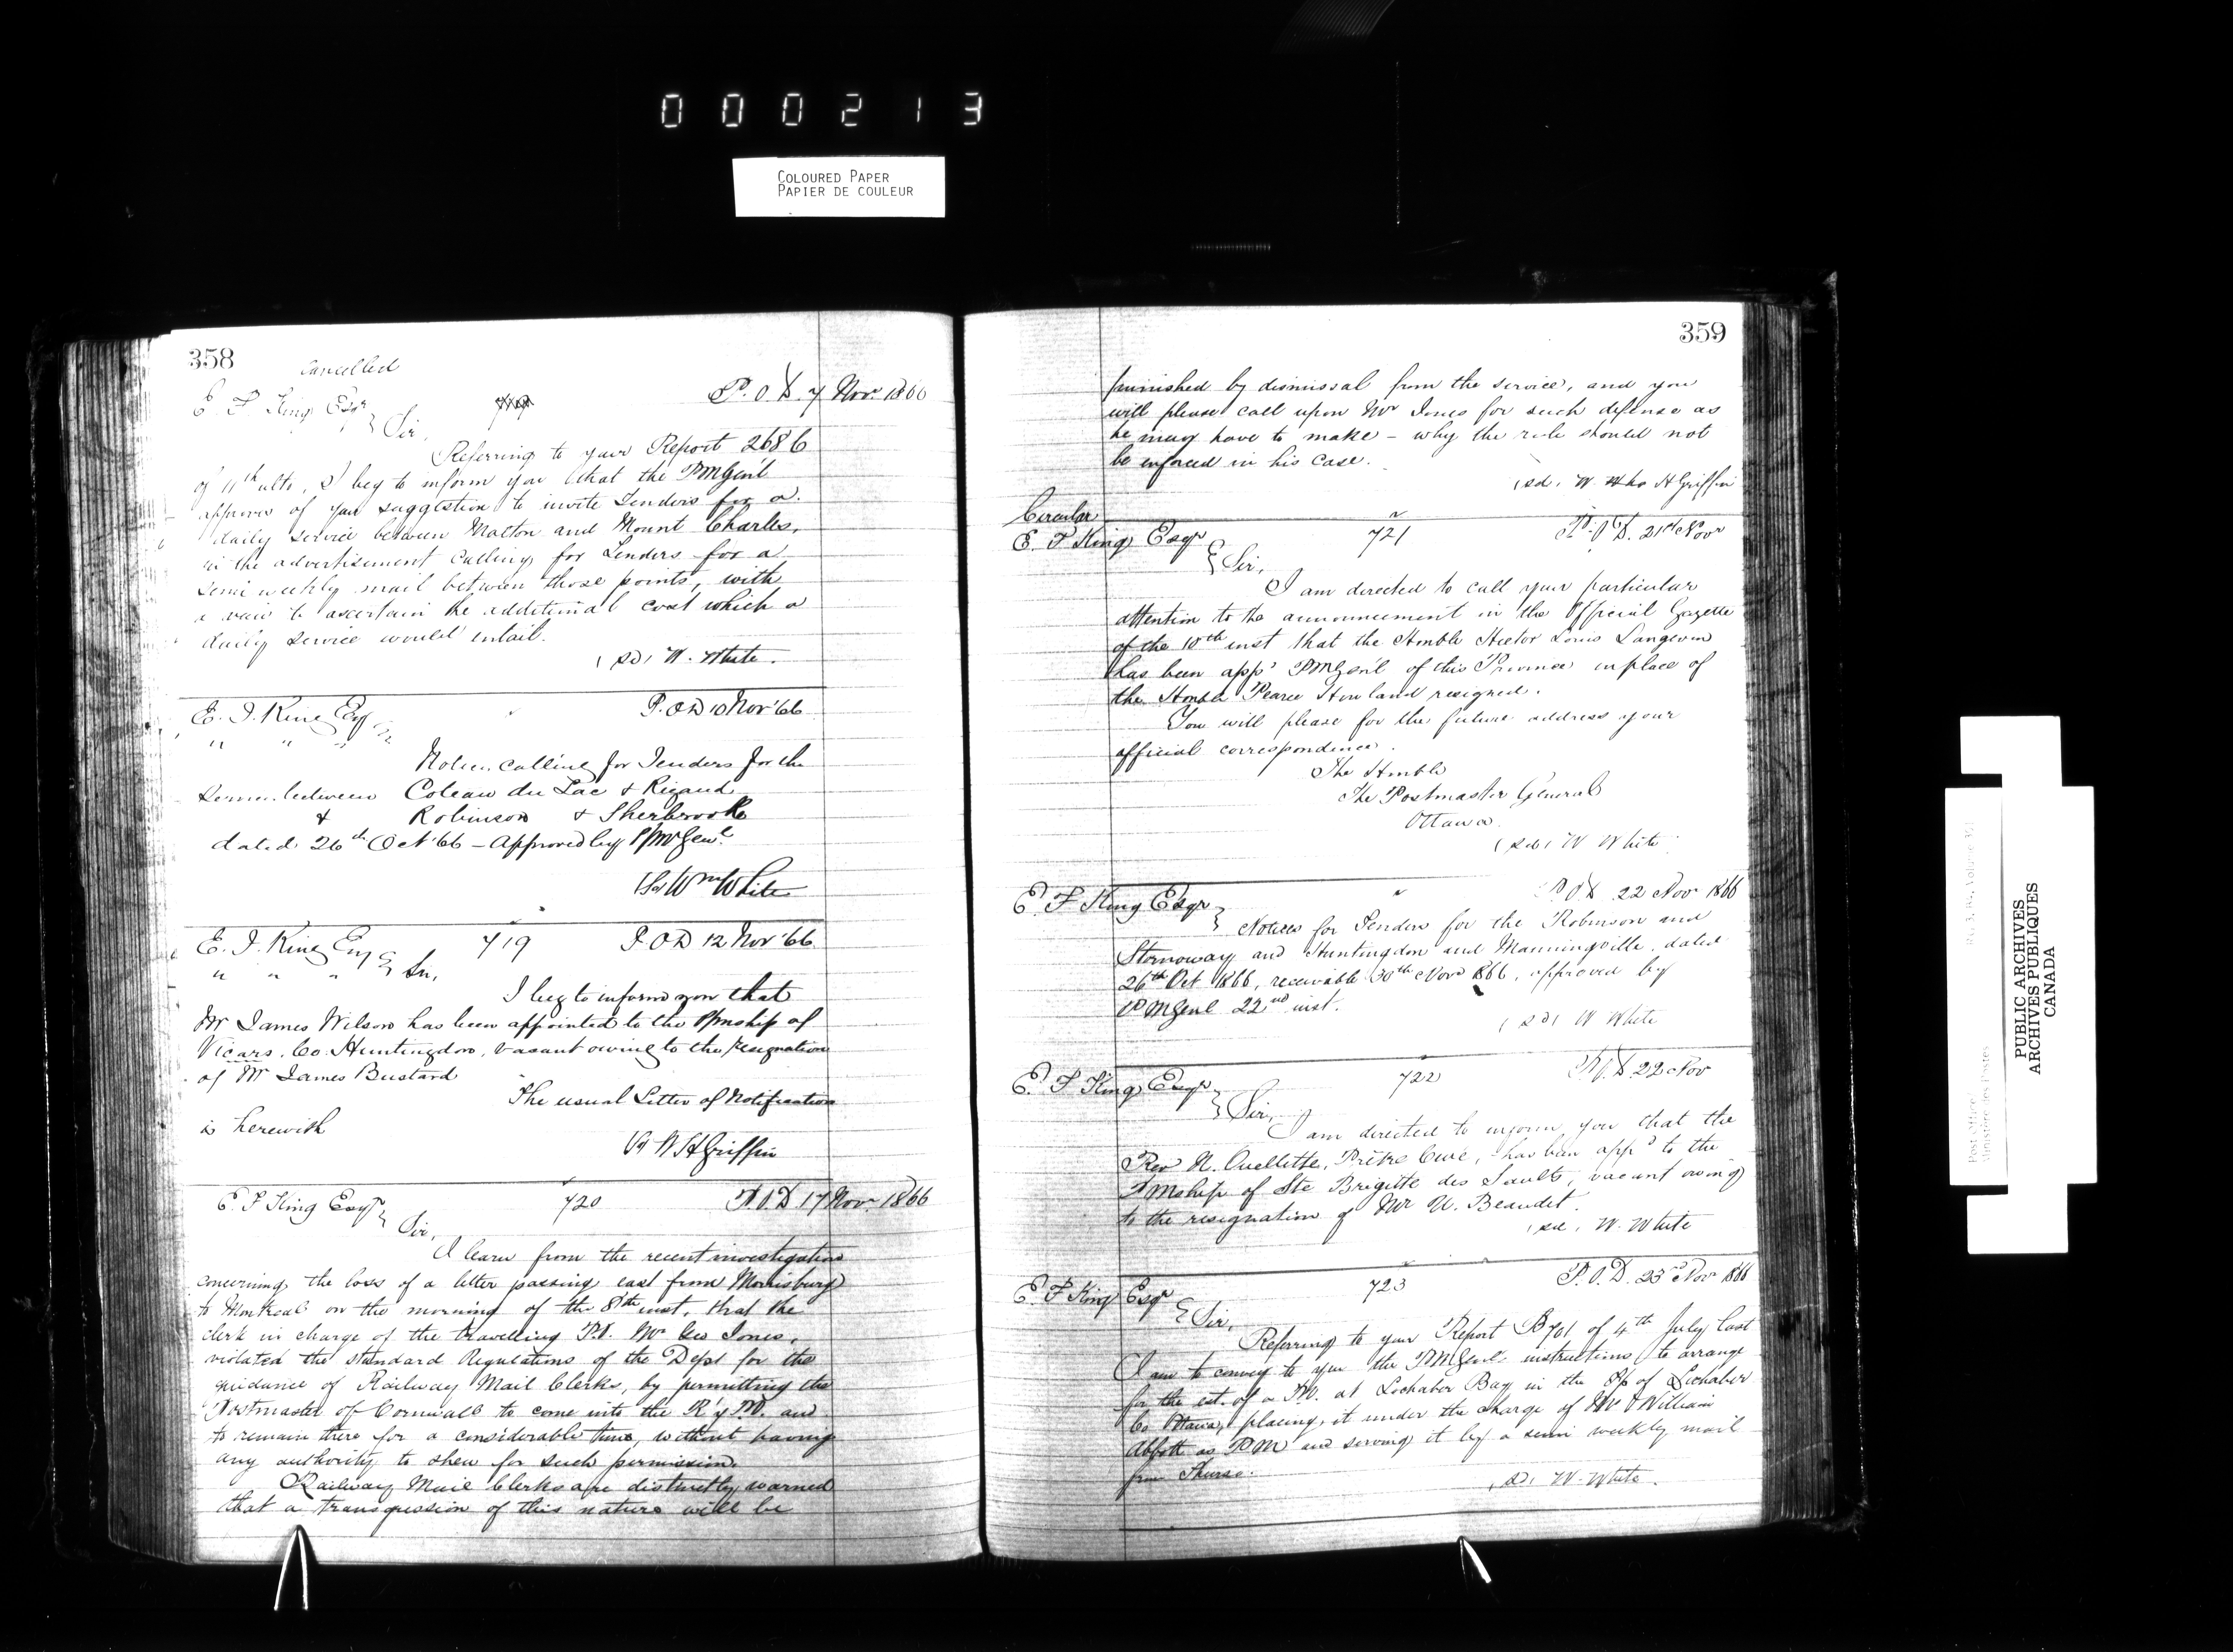 000213
COLOURED PAPER
PAPIER DE COULEUR
358
Cancelled
E. F. King Esqr
Sir,
719
P.O.D. 7 Nov. 1866
Referring to your Report 2686
of 11th ulto, I beg to inform you that the PMGenl
approves of your suggestion to invite Tenders for a
daily service between Malton and Mount Charles,
in the advertisement calling for Tenders for a
semi weekly mail between those points, with
a view to ascertain the additional cost which a
daily service would entail.
(sd) W. White.
E. F. King Esq
P.O.D 10 Nov '66
" " "
Notices calling for Tenders for the
between Coteau du Lac & Rigaud
& Robinson & Sherbrooke
dated 26th Oct '66 – Approved by P/M Genl.
(Sd) Wm White
E. F. King Esq
719
P.O.D 12 Nov '66
" " " Sir,
I beg to inform you that
Mr James Wilson has been appointed to the P/mship of
Vicars, Co. Huntingdon, vacant owing to the resignation
of Mr James Bustard
The usual Letter of Notification
is herewith
(Sd) W H Griffin
E. F King Esqr
720
P.O.D 17 Nov. 1866
Sir,
I learn from the recent investigation
concerning the loss of a letter passing east from Morrisburg
to Montreal on the morning of the 8th inst, that the
clerk in charge of the travelling P.O. Mr Geo Jones,
violated the standard Regulations of the Dept for the
guidance of Railway Mail Clerks, by permitting the
Postmaster of Cornwall to come into the R'y P.O. and
to remain there for a considerable time, without having
any authority to shew for such permission.
Railway Mail Clerks are distinctly warned
that a transgression of this nature will be
359
punished by dismissal from the service, and you
will please call upon Mr Jones for such defense as
he may have to make – why the rule should not
be enforced in his case.
(sd) W. H Griffin
Circular
E. F King Esqr
721
P.O.D. 21st Nov
Sir,
I am directed to call your particular
attention to the announcement in the Official Gazette
of the 10th inst that the Honble Hector Louis Langevin
has been appd PMGenl of this Province in place of
the Honble Pearce Howland resigned.
You will please for the future address your
official correspondence.
The Honble
The Postmaster General
Ottawa.
(sd) W White
E. F King Esqr
P.O.D 22 Nov 1866
Notices for Tenders for the Robinson and
Stornoway and Huntingdon and Manningville, dated
26th Oct 1866, receivable 30th Nov 1866, approved by
PMGenl 22nd inst.
(sd) W White
E. F King Esqr
722
P.O.D 22 Nov
Sir,
I am directed to inform you that the
Rev N. Ouellette, Prêtre Curé, has been appd to the
Pmship of Ste Brigitte des Saults, vacant owing
to the resignation of Mr U. Beaudet.
(sd) W. White
E. F King Esqr
723
P.O.D. 23rd Nov 1866
Sir,
Referring to your Report B 701 of 4th July last
I am to convey to you the PMGenl's instructions to arrange
for the est. of a P.O. at Lochaber Bay in the Tp of Lochaber
Co Ottawa, placing it under the charge of Mr William
Abbott as PM and serving it by a semi weekly mail
from Thurso.
(sd) W. White.
Post Office
Ministère des Postes
PUBLIC ARCHIVES
ARCHIVES PUBLIQUES
CANADA